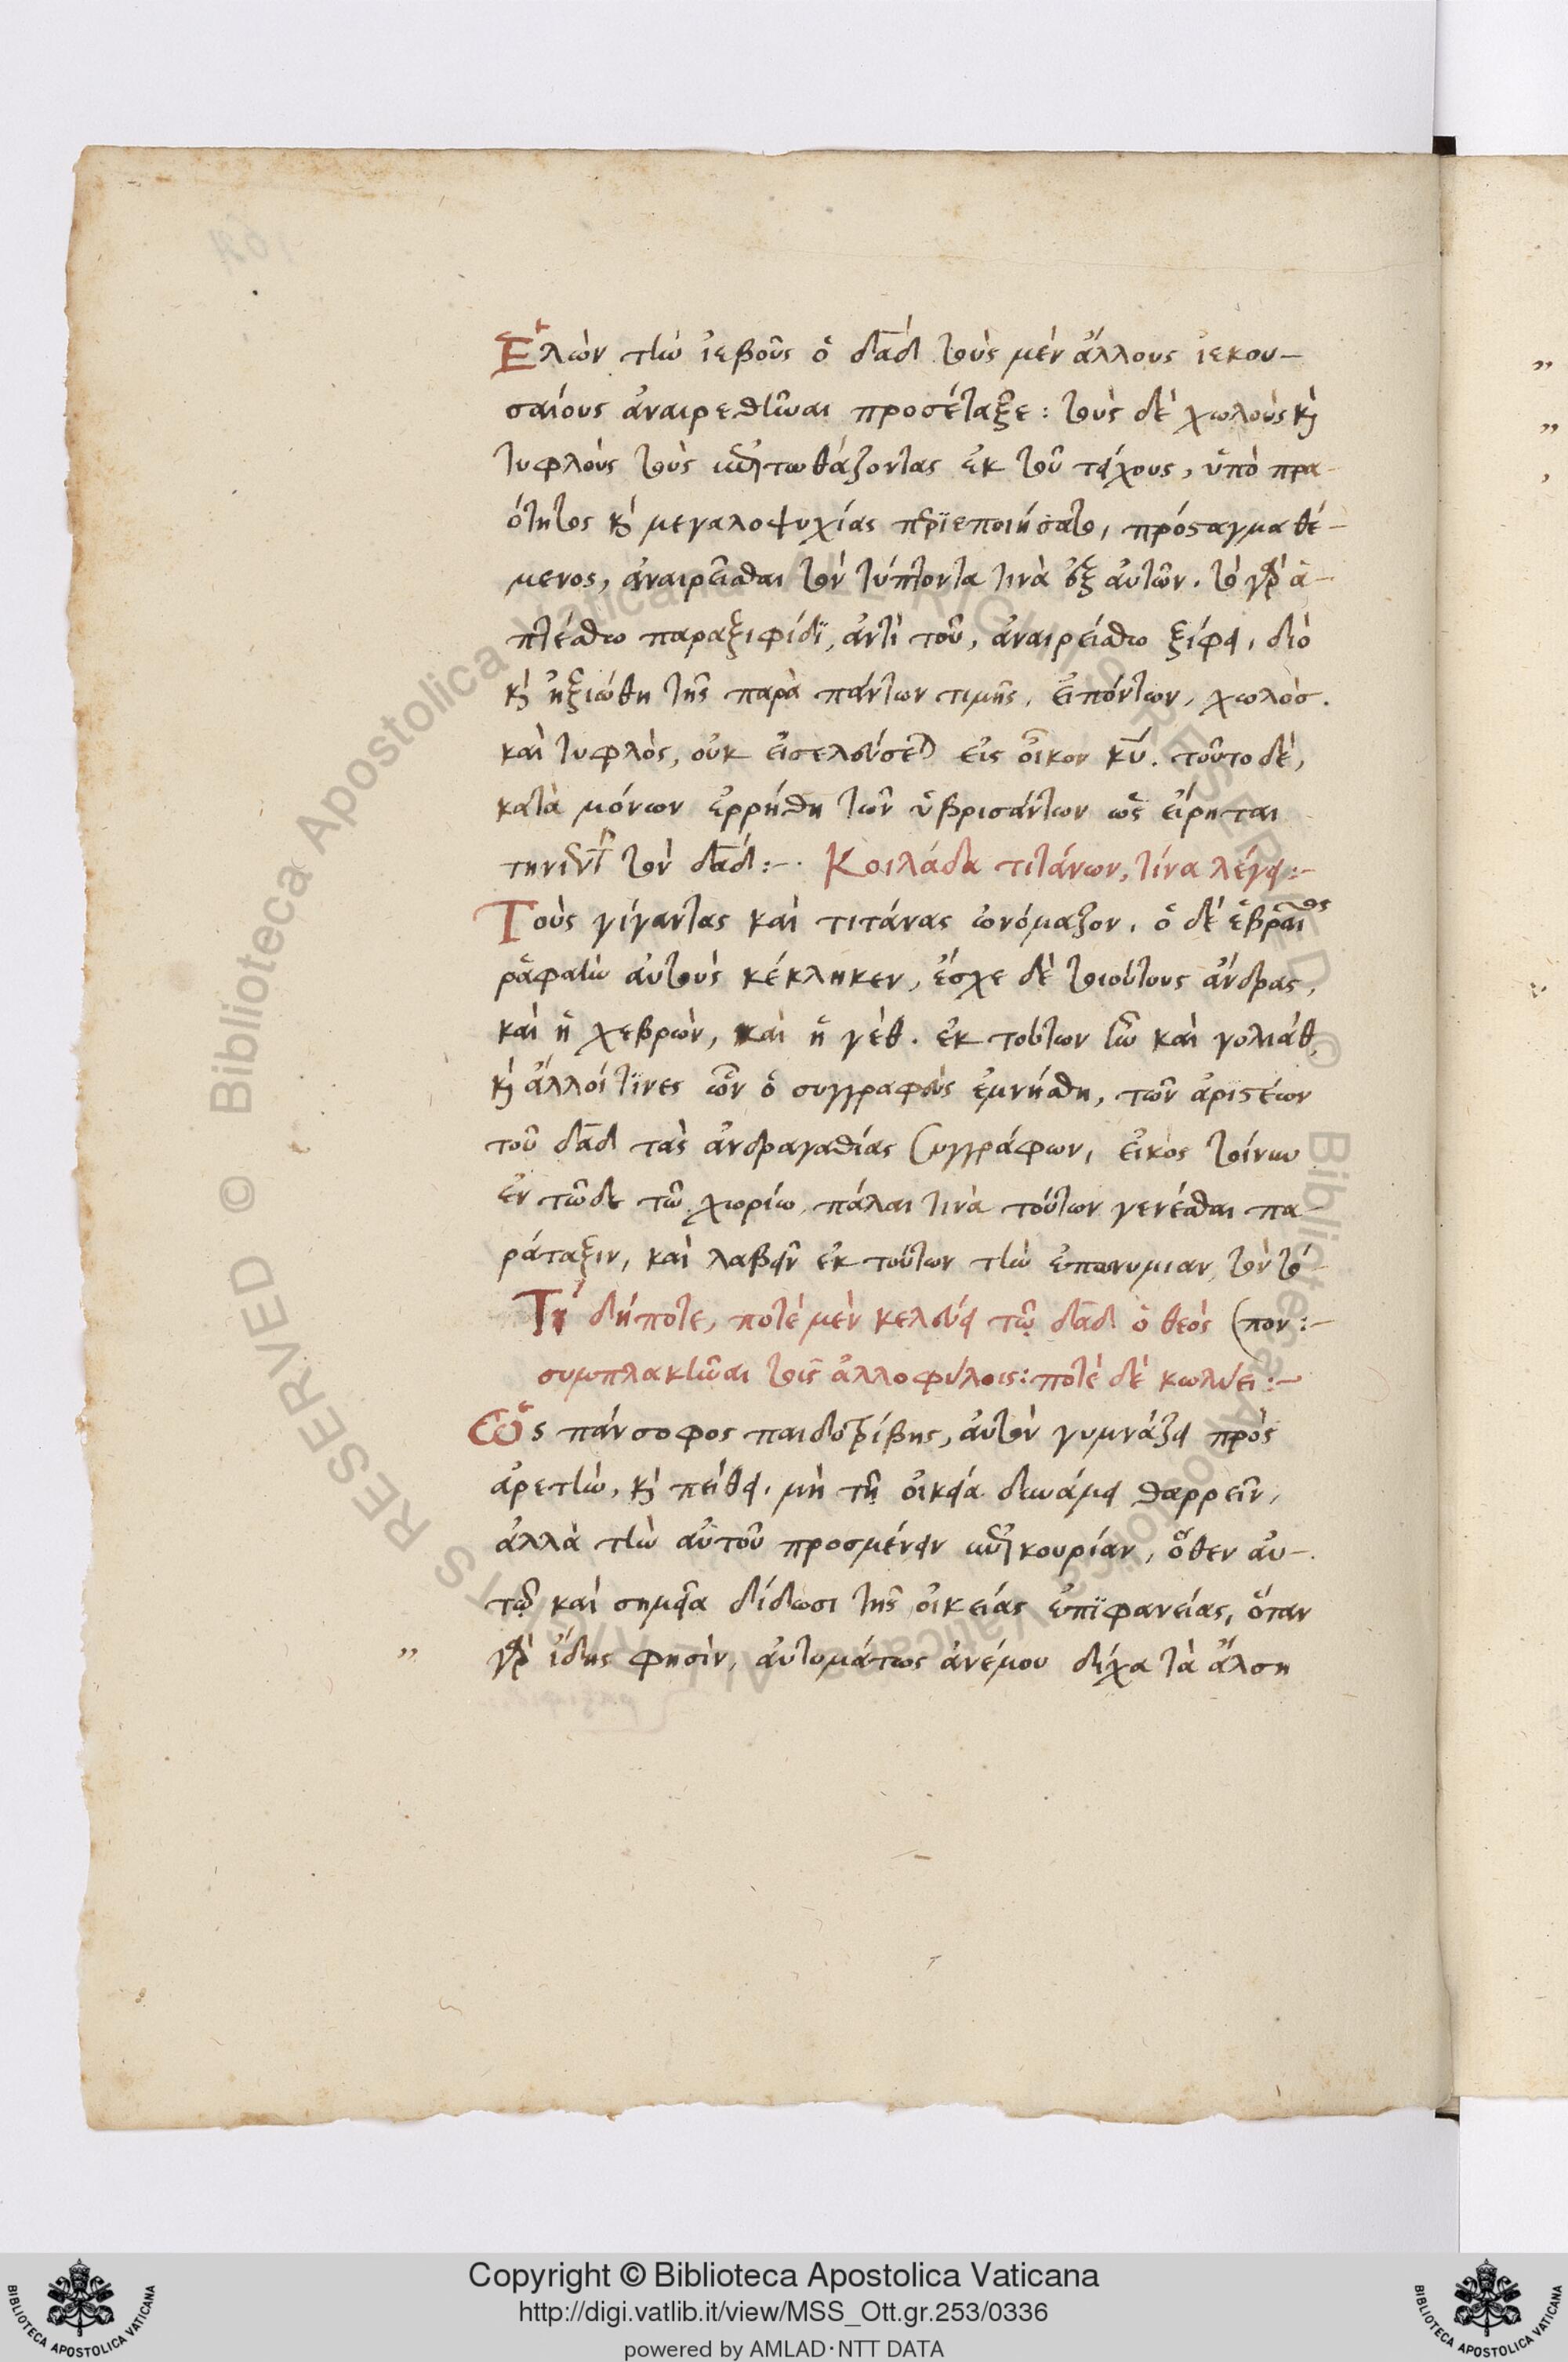 Ἑλὼν τὴν ἰεβοῦς ὁ δα̅δ τοὺς μὲν ἄλλους ἰεκου-
σαίους ἀναιρεθῆναι προσέταξε: τοὺς δὲ χωλοὺς κ
τυφλοὺς τοὺς ἐπιτωθάζοντας ἐκ τοῦ τείχους, ὑπὸ πρα-
ότητος κ μεγαλοψυχίας περϊεποιήσατο, πρόσταγμα θέ-
μενος, ἀναιρεῖσθαι τὸν τύπτοντα τινὰ ἐξ αὐτῶν. τὸ γὰρ ἁ-
πτέσθω παραξιφίδϊ, ἀντὶ τοῦ, ἀναιρείσθω ξίφει, διὸ
κ ἠξιώθη τῆς παρὰ πάντων τιμῆς, εἰπόντων, χωλὸσ.
καὶ τυφλὸς, οὐκ εἰσελεύσεται εἰς οἶκον κυ̅. τοῦτο δὲ,
κατὰ μόνων ἐρρήθη τῶν ὑβρισάντων ὡς εἴρηται
τὸν δα̅δ:-. Κοιλάδα τιτάνων, τίνα λέγει:-
Τοὺς γίγαντας καὶ τιτάνας ὠνόμαζον, ὁ δὲ ἑβραῖος
ῥαφαῒν αὐτοὺς κέκληκεν, ἔσχε δὲ τοιούτους ἄνδρας,
καὶ ἡ χεβρὼν, καὶ ἡ γὲθ. ἐκ τούτων ἦν καὶ γολιάθ,
κ ἄλλοί τϊνες ὧν ὁ συγγραφεὺς ἐμνήσθη, τῶν ἀριστέων
τοῦ δα̅δ τὰς ἀνδραγαθίας συγγράφων, εἰκὸς τοίνυν
ἐν τῶδε τῶ χωρίω, πάλαι τινὰ τούτων γενέσθαι πα-
ράταξιν, καὶ λαβεῖν ἐκ τούτων τὴν ἐπωνυμιαν, τὸν τό-
Τί δήποτε, ποτὲ μὲν κελεύει τῷ δα̅δ ὁ θεὸς (πον:-
συμπλακῆναι τοῖς ἀλλοφύλοις: ποτὲ δὲ κωλύει:-
Ὡς πάνσοφος παιδοτρίβης, αὐτὸν γυμνάζει πρὸς
ἀρετὴν, κ πείθει, μὴ τῇ οἰκεία δυνάμει θαρρεῖν,
ἀλλὰ τὴν αὐτοῦ προσμένειν ἐπικουρίαν, ὅθεν αὐ-.
τῷ καὶ σημεῖα δίδωσι τῆς οἰκειάς ἐπϊφανείας, ὅταν
" γὰρ ἴδης φησὶν, αὐτομάτως ἀνέμου δίχα τὰ ἄλση
Copyright © Biblioteca Apostolica Vaticana
http://digi.vatlib.it/view/MSS_Ott.gr.253/0336
powered by AMLAD·NTT DATA
BIBLIOTECA APOSTOLICA VATICANA
BIBLIOTECA APOSTOLICA VATICANA